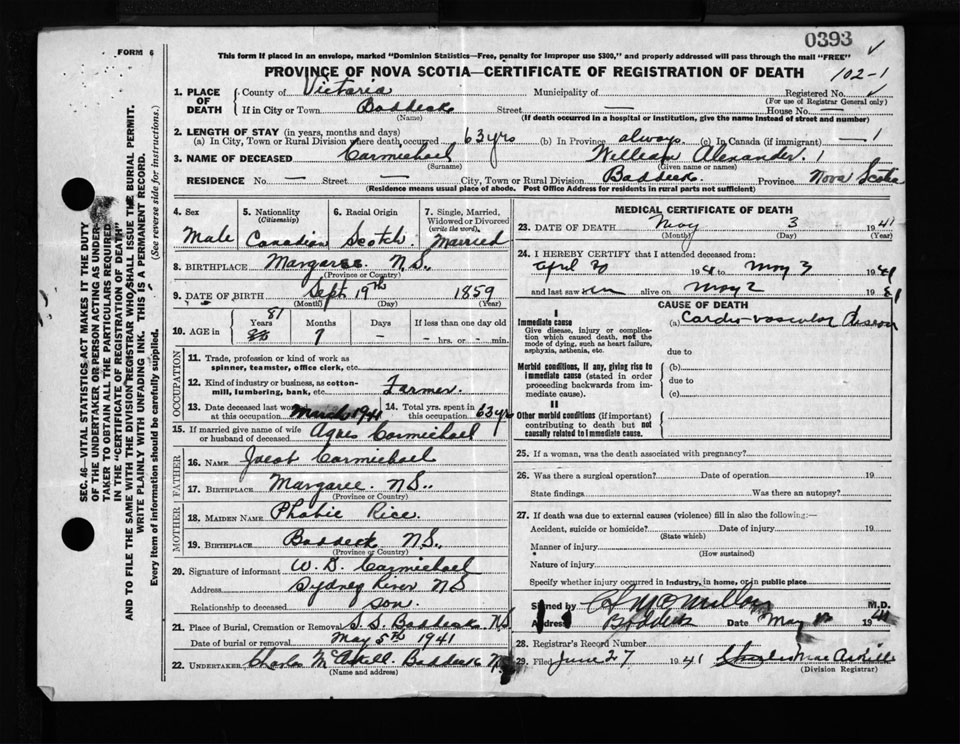 0393
FORM 6
This form if placed in an envelope, marked "Dominion Statistics—Free, penalty for improper use $300," and properly addressed will pass through the mail "FREE"
PROVINCE OF NOVA SCOTIA—CERTIFICATE OF REGISTRATION OF DEATH
102-1
1. PLACE OF DEATH County of Victoria Municipality of Registered No.
(For use of Registrar General only)
If in City or Town Baddeck Street — House No. —
(Name) (If death occurred in a hospital or institution, give the name instead of street and number)
2. LENGTH OF STAY (in years, months and days)
(a) In City, Town or Rural Division where death occurred 63 yrs (b) In Province always (c) In Canada (if immigrant) —
3. NAME OF DECEASED Carmichael William Alexander
(Surname) (Given name or names)
RESIDENCE No. — Street — City, Town or Rural Division Baddeck Province Nova Scotia
(Residence means usual place of abode. Post Office Address for residents in rural parts not sufficient)
4. Sex 5. Nationality (Citizenship) 6. Racial Origin 7. Single, Married, Widowed or Divorced (write the word)
Male Canadian Scotch Married
8. BIRTHPLACE Margaree N.S.
(Province or Country)
9. DATE OF BIRTH Sept 19th 1859
(Month) (Day) (Year)
10. AGE in Years Months Days If less than one day old
81 7 - - hrs. or - min.
OCCUPATION
11. Trade, profession or kind of work as spinner, teamster, office clerk, etc.
12. Kind of industry or business, as cotton-mill, lumbering, bank, etc. Farmer
13. Date deceased last worked at this occupation March 1941 14. Total yrs. spent in this occupation 63 yrs
15. If married give name of wife or husband of deceased Agnes Carmichael
FATHER
16. NAME Carmichael
17. BIRTHPLACE Margaree N.S.
(Province or Country)
MOTHER
18. MAIDEN NAME Phobie Rice
19. BIRTHPLACE Baddeck N.S.
(Province or Country)
20. Signature of informant W. D. Carmichael
Address Sydney River N S
Relationship to deceased son
21. Place of Burial, Cremation or Removal Baddeck N.S.
Date of burial or removal May 5th 1941
22. UNDERTAKER Charles McAskill Baddeck
(Name and address)
MEDICAL CERTIFICATE OF DEATH
23. DATE OF DEATH May 3 1941
(Month) (Day) (Year)
24. I HEREBY CERTIFY that I attended deceased from:
April 30 1941 to May 3 1941
and last saw him alive on May 2 1941
CAUSE OF DEATH
I
Immediate cause (a) Cardio-vascular disease
Give disease, injury or complication which caused death, not the mode of dying, such as heart failure, asphyxia, asthenia, etc. due to
Morbid conditions, if any, giving rise to immediate cause (stated in order proceeding backwards from immediate cause). (b)
due to
(c)
II
Other morbid conditions (if important) contributing to death but not causally related to immediate cause.
25. If a woman, was the death associated with pregnancy?
26. Was there a surgical operation? Date of operation 19
State findings Was there an autopsy?
27. If death was due to external causes (violence) fill in also the following:—
Accident, suicide or homicide? Date of injury 19
(State which)
Manner of injury
(How sustained)
Nature of injury
Specify whether injury occurred in industry, in home, or in public place
Signed by C H McMillan M.D.
Address Baddeck Date May 1941
28. Registrar's Record Number
29. Filed June 27 1941
(Division Registrar)
SEC. 46—VITAL STATISTICS ACT MAKES IT THE DUTY
OF THE UNDERTAKER OR PERSON ACTING AS UNDERTAKER TO OBTAIN ALL THE PARTICULARS REQUIRED
IN THE "CERTIFICATE OF REGISTRATION OF DEATH"
AND TO FILE THE SAME WITH THE DIVISION REGISTRAR WHO SHALL ISSUE THE BURIAL PERMIT.
WRITE PLAINLY WITH UNFADING INK. THIS IS A PERMANENT RECORD.
Every item of information should be carefully supplied. (See reverse side for instructions.)